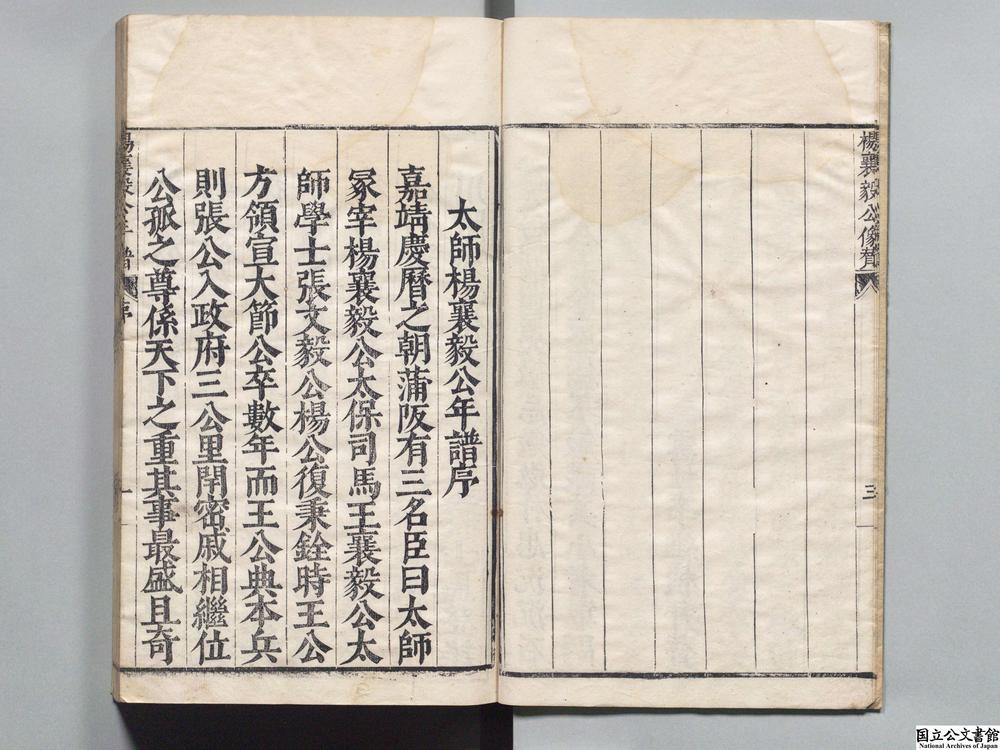 楊襄毅公像贊
三
太師楊襄毅公年譜序
嘉靖慶曆之朝蒲阪有三名臣曰太師
冡宰楊襄毅公太保司馬王襄毅公太
師學士張文毅公楊公復秉銓時王公
方領宣大節公卒數年而王公典本兵
則張公入政府三公里閈密戚相繼位
公孤之尊係天下之重其事最盛且奇
楊襄毅公年譜
序
一
国立公文書館
National Archives of Japan